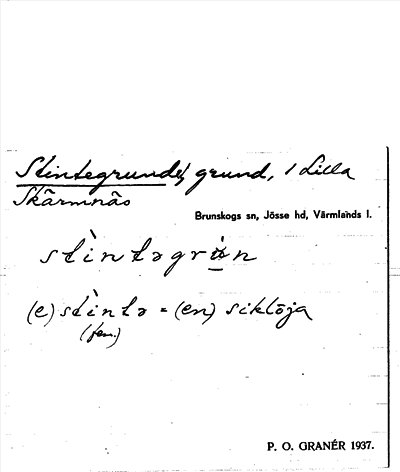 Stintegrundet, grund, i Lilla
Skärmnäs
Brunskogs sn, Jösse hd, Värmlands l.
stìntəgrùn
(e) stìntə = (en) siklöja
(fem.)
P. O. GRANÉR 1937.